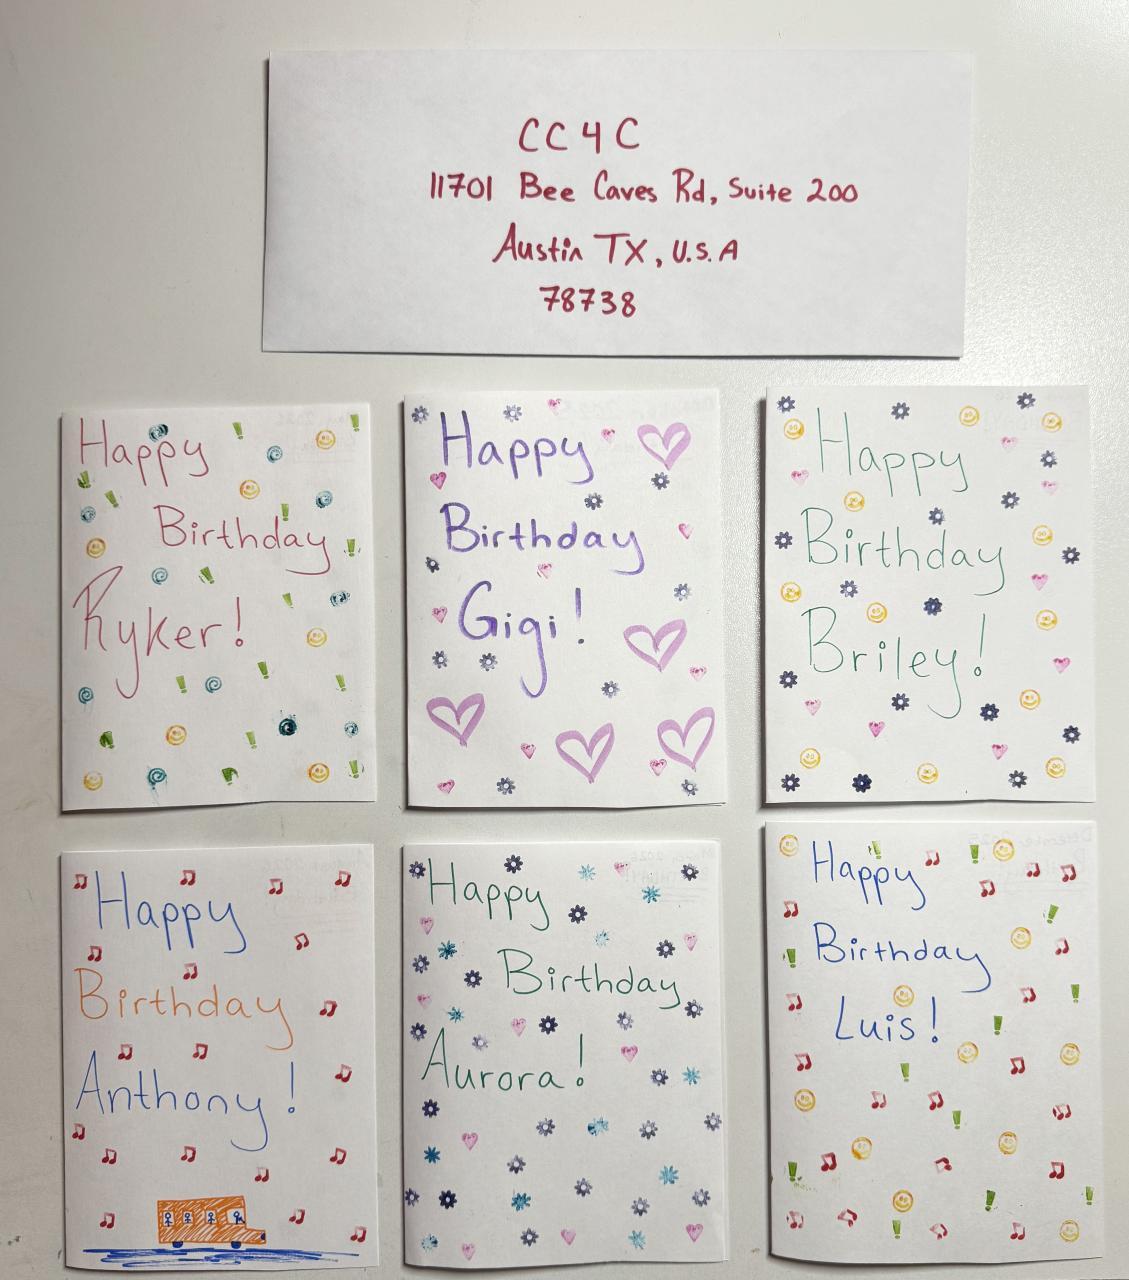 CC4C
11701 Bee Caves Rd, Suite 200
Austin TX, U.S.A
78738
Happy
Birthday
Ryker!
Happy
Birthday
Gigi!
Happy
Birthday
Briley!
Happy
Birthday
Anthony!
Happy
Birthday
Aurora!
Happy
Birthday
Luis!